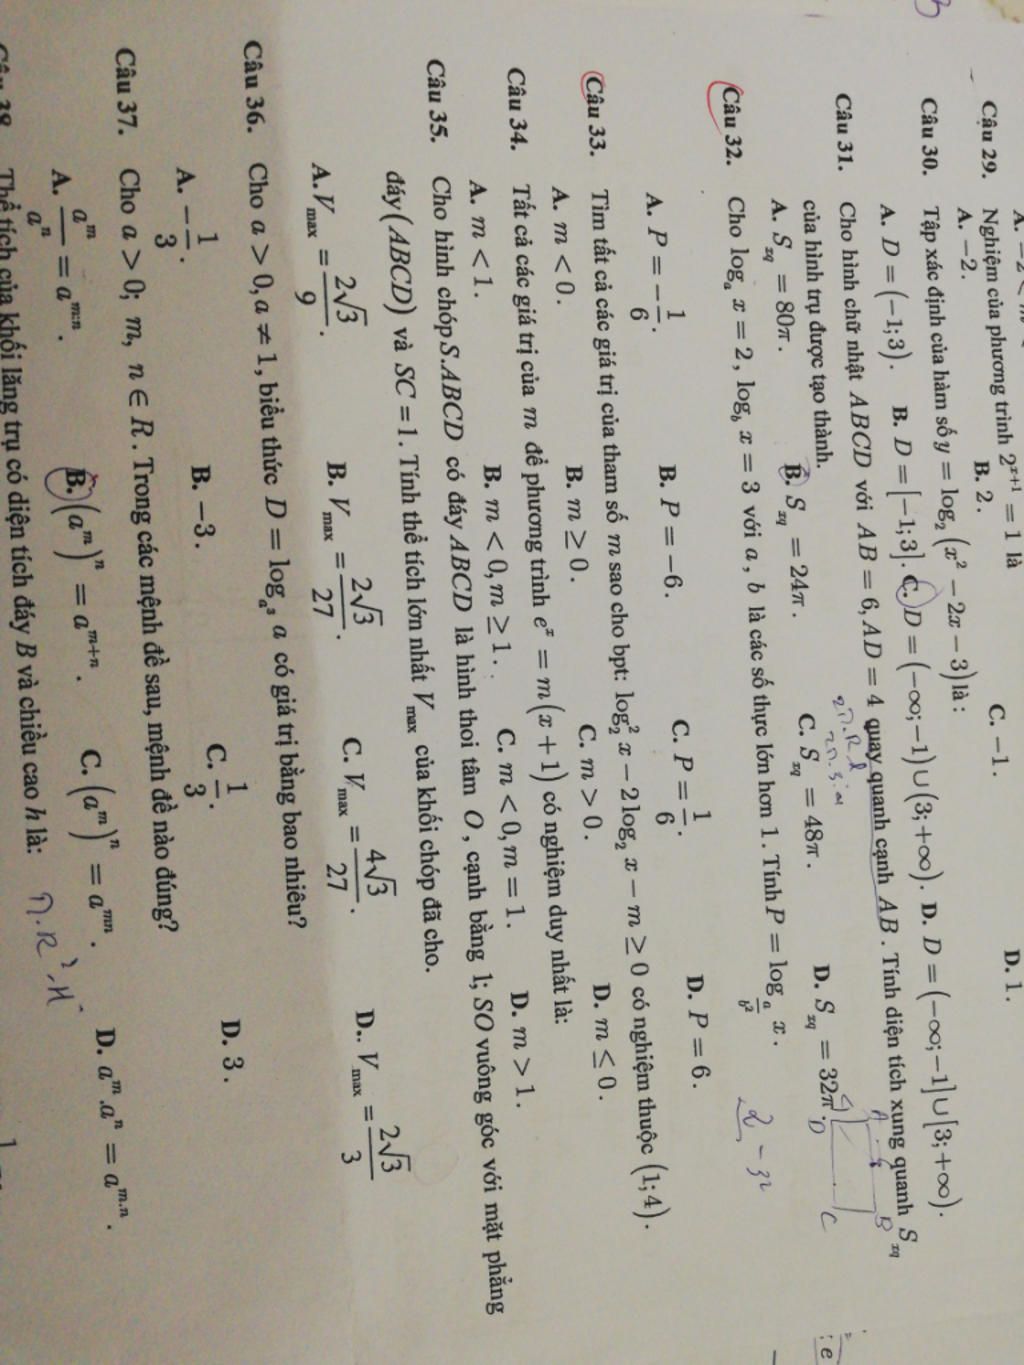 Câu 29. Nghiệm của phương trình 2^{x+1} = 1 là
A. −2. B. 2. C. −1. D. 1.
Câu 30. Tập xác định của hàm số y = log_2 (x^2 − 2x − 3) là :
A. D = (−1;3). B. D = [−1;3]. C. D = (−∞;−1)∪(3;+∞). D. D = (−∞;−1]∪[3;+∞).
Câu 31. Cho hình chữ nhật ABCD với AB = 6, AD = 4 quay quanh cạnh AB. Tính diện tích xung quanh S_{xq}
của hình trụ được tạo thành.
A. S_{xq} = 80π. B. S_{xq} = 24π. C. S_{xq} = 48π. D. S_{xq} = 32π.
Câu 32. Cho log_a x = 2, log_b x = 3 với a, b là các số thực lớn hơn 1. Tính P = log_{a/b^2} x.
A. P = −1/6. B. P = −6. C. P = 1/6. D. P = 6.
Câu 33. Tìm tất cả các giá trị của tham số m sao cho bpt: log_2^2 x − 2 log_2 x − m ≥ 0 có nghiệm thuộc (1;4).
A. m < 0. B. m ≥ 0. C. m > 0. D. m ≤ 0.
Câu 34. Tất cả các giá trị của m để phương trình e^x = m(x + 1) có nghiệm duy nhất là:
A. m < 1. B. m < 0, m ≥ 1. C. m < 0, m = 1. D. m > 1.
Câu 35. Cho hình chóp S.ABCD có đáy ABCD là hình thoi tâm O, cạnh bằng 1; SO vuông góc với mặt phẳng
đáy (ABCD) và SC = 1. Tính thể tích lớn nhất V_{max} của khối chóp đã cho.
A. V_{max} = 2√3/9. B. V_{max} = 2√3/27. C. V_{max} = 4√3/27. D.. V_{max} = 2√3/3
Câu 36. Cho a > 0, a ≠ 1, biểu thức D = log_{a^3} a có giá trị bằng bao nhiêu?
A. −1/3. B. −3. C. 1/3. D. 3.
Câu 37. Cho a > 0; m, n ∈ R. Trong các mệnh đề sau, mệnh đề nào đúng?
A. a^m/a^n = a^{m:n}. B. (a^m)^n = a^{m+n}. C. (a^m)^n = a^{mn}. D. a^m.a^n = a^{m.n}.
Thể tích của khối lăng trụ có diện tích đáy B và chiều cao h là: